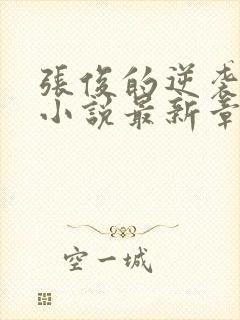 張俊的逆袭
小説最新章
空一城